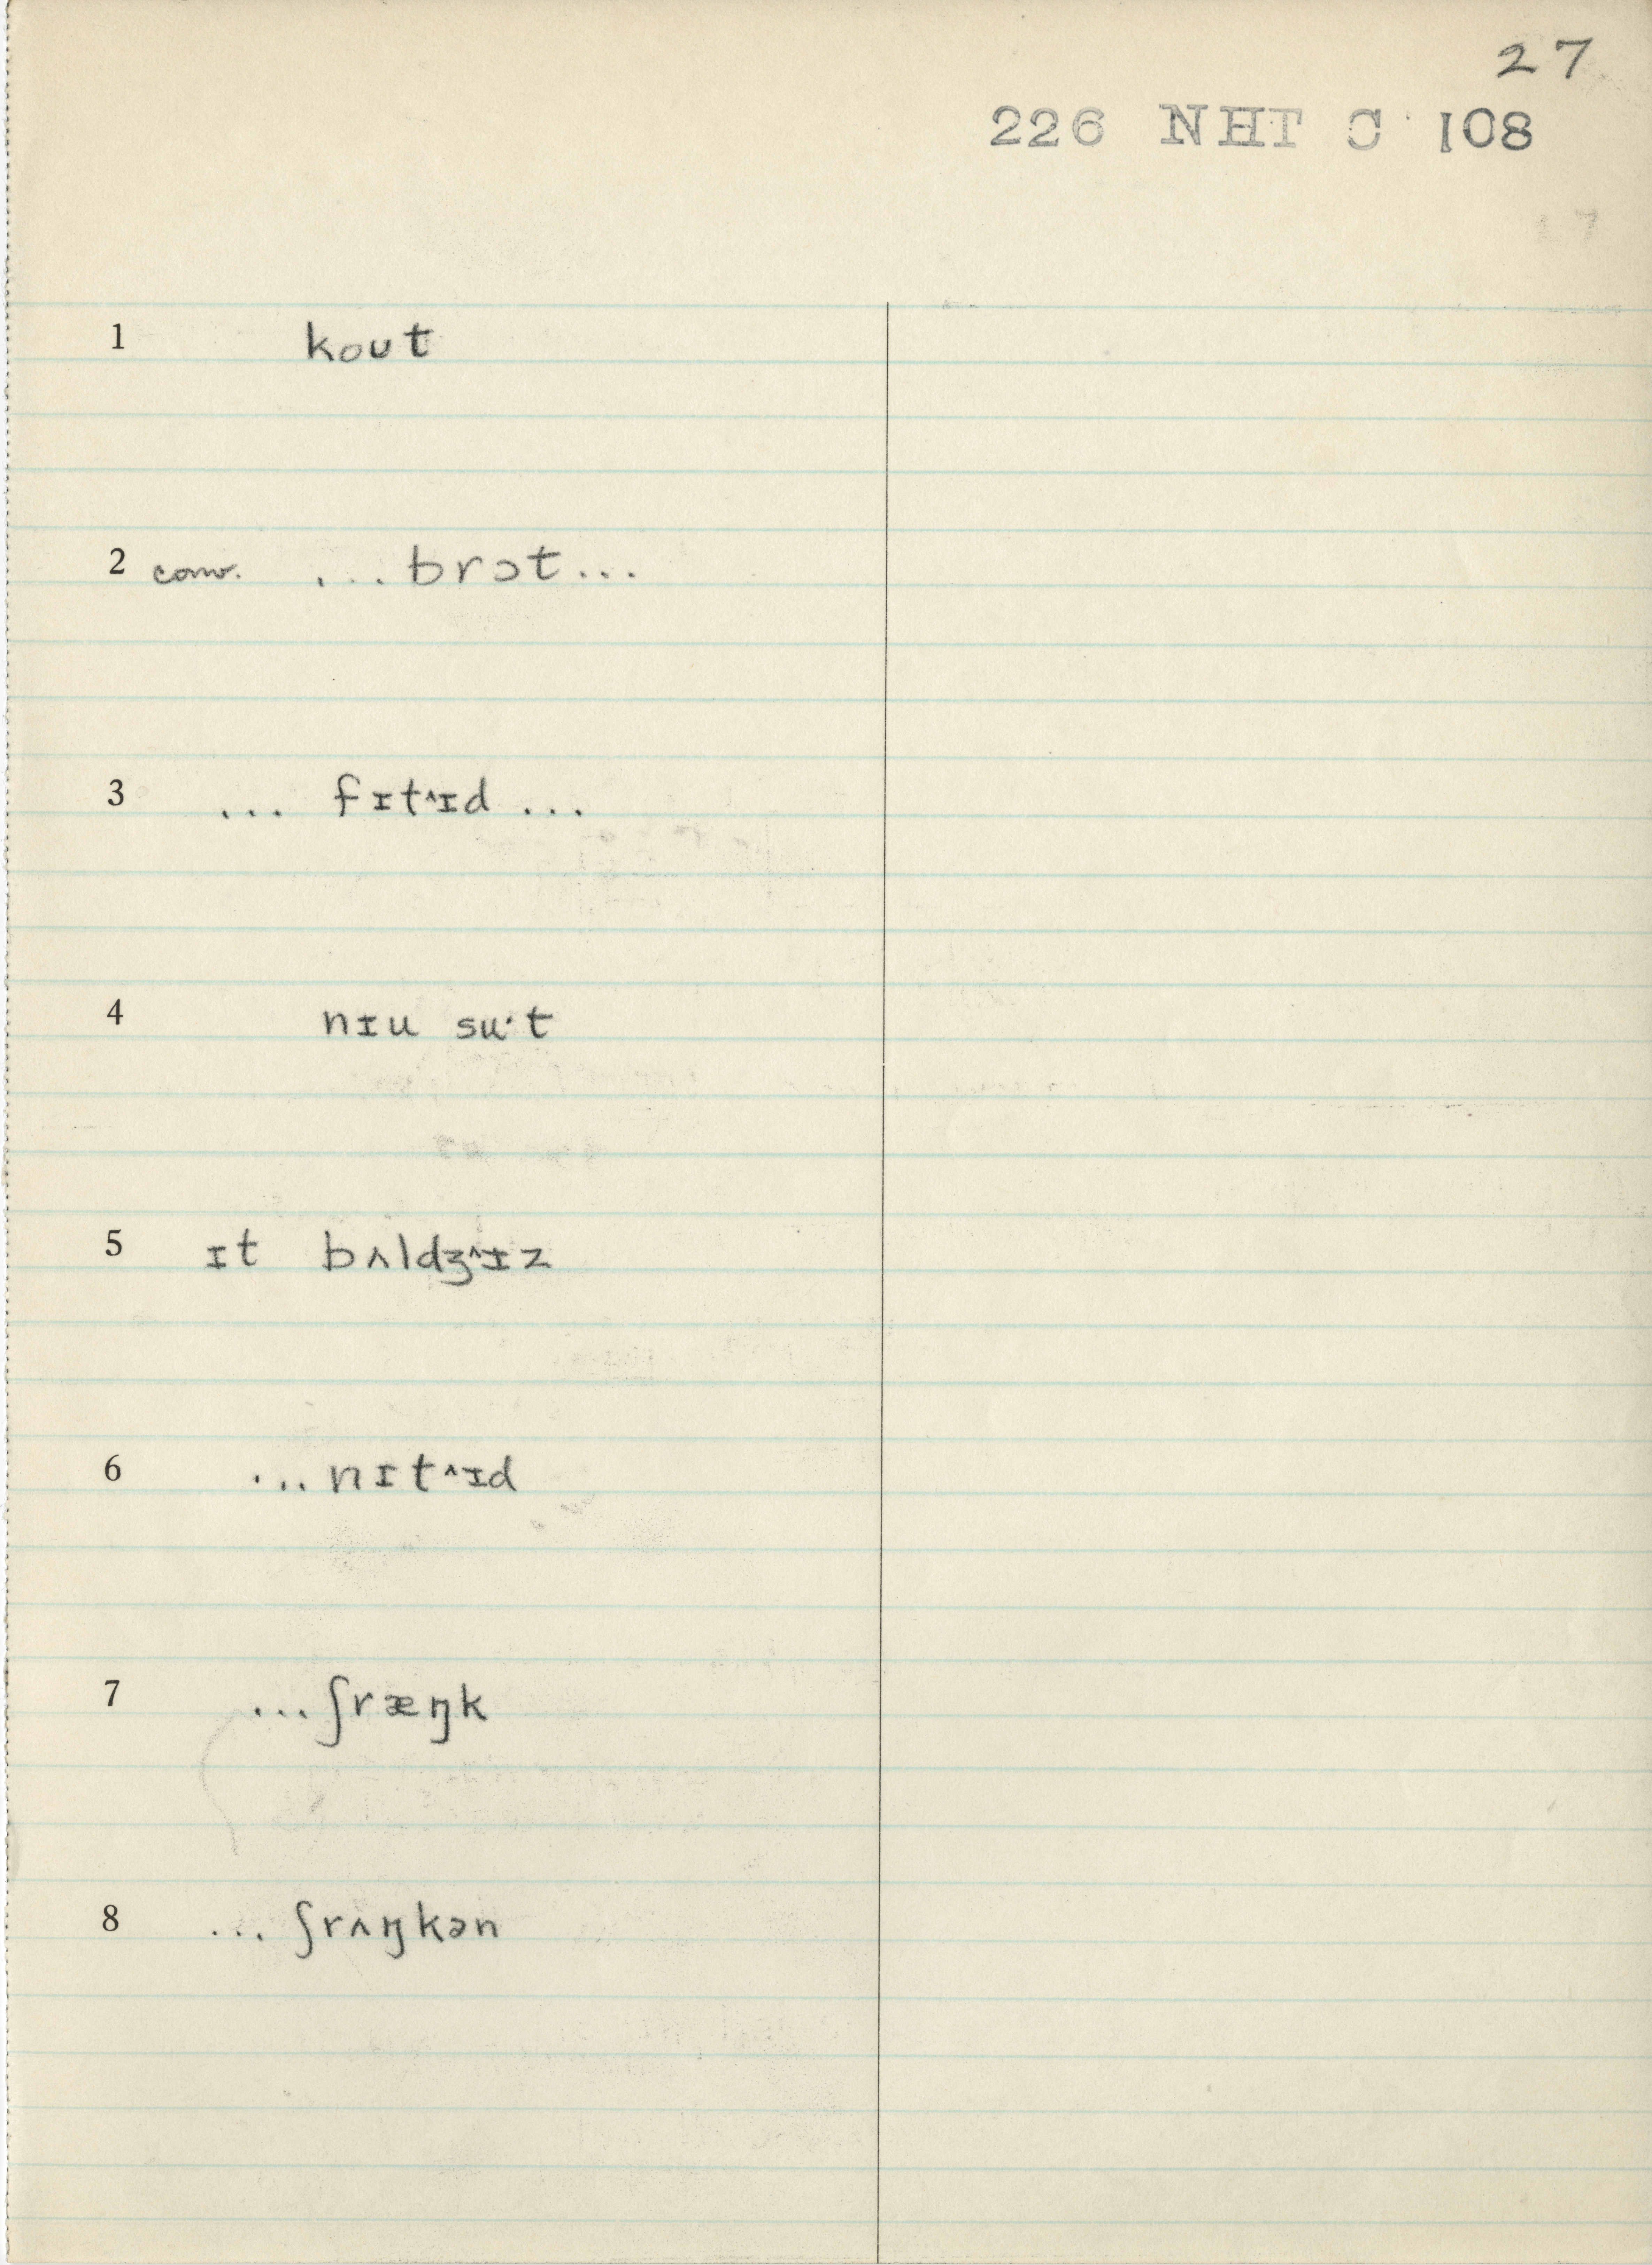 27
226 NHT C 108
1 kout
2 conv. ...brɔt...
3 ... fɪt^ɪd ...
4 nɪu su·t
5 ɪt bʌldʒ^ɪz
6 ...nɪt^ɪd
7 ...ʃræŋk
8 ... ʃrʌŋkən